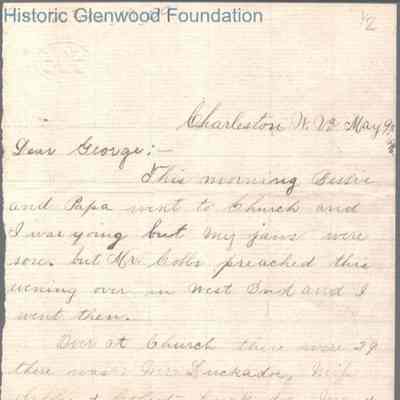 Historic Glenwood Foundation
1/2
Charleston W. Va May 9
Dear George:—
This morning Bessie
and Papa went to Church and
I was going but my jaws were
sore. but Mr. Cobbs preached this
evening over in West End and I
went then.
Over at Church there were 29
there was Mrs Huckadoe, Miss